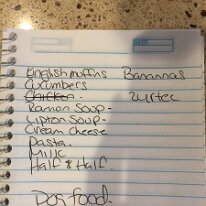 English muffins Banannas
Cucumbers
Chicken - Zyrtec
Ramon Soup -
Lipton Soup -
Cream cheese
Pasta -
Milk
Half & Half.
Dog food